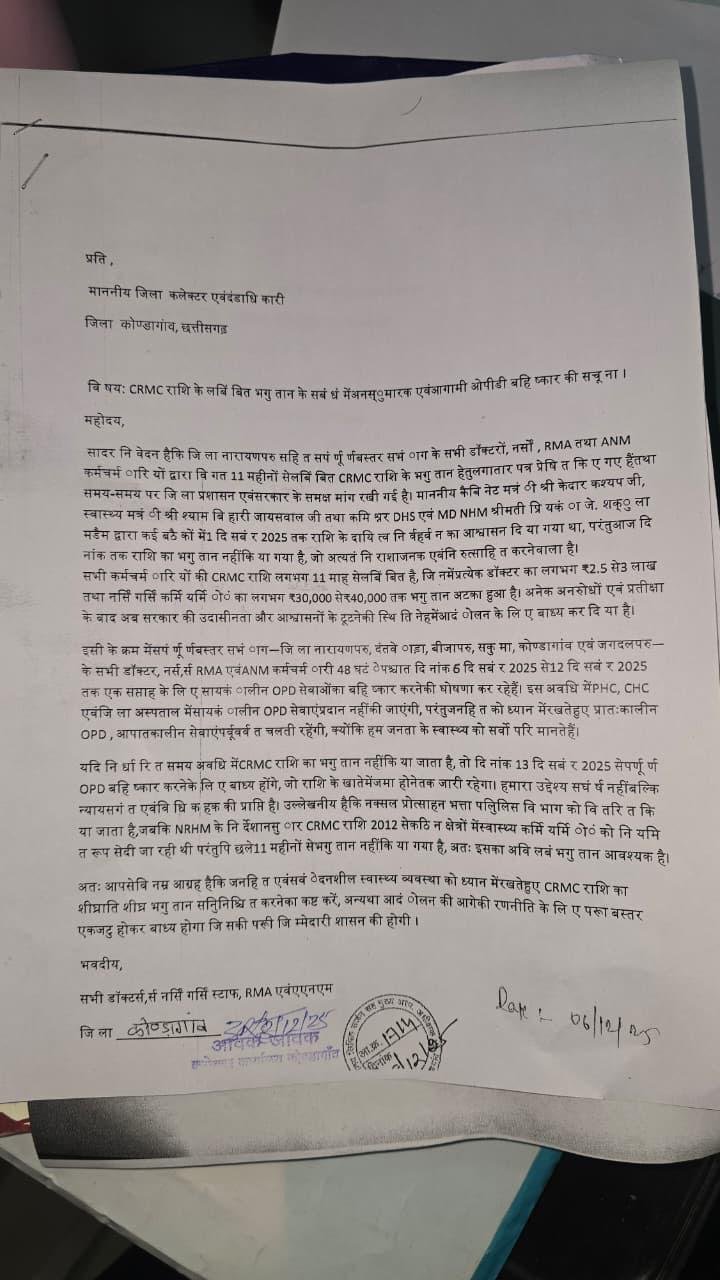 प्रति ,
माननीय जिला कलेक्टर एवंदंडाधि कारी
जिला कोण्डागांव, छत्तीसगढ़
वि षय: CRMC राशि के लबिं बित भगु तान के सबं धं मेंअनस्ुमारक एवंआगामी ओपीडी बहि ष्कार की सचू ना ।
महोदय,
सादर नि वेदन हैकि जि ला नारायणपरु सहि त सपं र्णू र्णबस्तर सभं ाग के सभी डॉक्टरों, नर्सों , RMA तथा ANM
कर्मचर्म ारि यों द्वारा वि गत 11 महीनों सेलबिं बित CRMC राशि के भगु तान हेतुलगातार पत्र प्रेषि त कि ए गए हैंतथा
समय-समय पर जि ला प्रशासन एवंसरकार के समक्ष मांग रखी गई है। माननीय कैबि नेट मत्रं ी श्री केदार कश्यप जी,
स्वास्थ्य मत्रं ी श्री श्याम बि हारी जायसवाल जी तथा कमि श्नर DHS एवं MD NHM श्रीमती प्रि यकं ा जे. शक्ु ला
मडैम द्वारा कई बठै कों में1 दि सबं र 2025 तक राशि के दायि त्व नि र्वहर्व न का आश्वासन दि या गया था, परंतुआज दि
नांक तक राशि का भगु तान नहींकि या गया है, जो अत्यतं नि राशाजनक एवंनि रुत्साहि त करनेवाला है।
सभी कर्मचर्म ारि यों की CRMC राशि लगभग 11 माह सेलबिं बित है, जि नमेंप्रत्येक डॉक्टर का लगभग ₹2.5 से3 लाख
तथा नर्सिं गर्सिं कर्मि यर्मि ोंं का लगभग ₹30,000 से₹40,000 तक भगु तान अटका हुआ है। अनेक अनरुोधों एवं प्रतीक्षा
के बाद अब सरकार की उदासीनता और आश्वासनों के टूटनेकी स्थि ति नेहमेंआदं ोलन के लि ए बाध्य कर दि या है।
इसी के क्रम मेंसपं र्णू र्णबस्तर सभं ाग—जि ला नारायणपरु, दंतवे ाड़ा, बीजापरु, सकु मा, कोण्डागांव एवं जगदलपरु—
के सभी डॉक्टर, नर्स,र्स RMA एवंANM कर्मचर्म ारी 48 घटं ेपश्चात दि नांक 6 दि सबं र 2025 से12 दि सबं र 2025
तक एक सप्ताह के लि ए सायकं ालीन OPD सेवाओंका बहि ष्कार करनेकी घोषणा कर रहेहैं। इस अवधि मेंPHC, CHC
एवंजि ला अस्पताल मेंसायकं ालीन OPD सेवाएंप्रदान नहींकी जाएंगी, परंतुजनहि त को ध्यान मेंरखतेहुए प्रातःकालीन
OPD , आपातकालीन सेवाएंपर्वूवर्व त चलती रहेंगी, क्योंकि हम जनता के स्वास्थ्य को सर्वो परि मानतेहैं।
यदि नि र्धा रि त समय अवधि मेंCRMC राशि का भगु तान नहींकि या जाता है, तो दि नांक 13 दि सबं र 2025 सेपर्णू र्ण
OPD बहि ष्कार करनेके लि ए बाध्य होंगे, जो राशि के खातेमेंजमा होनेतक जारी रहेगा। हमारा उद्देश्य सघं र्ष नहींबल्कि
न्यायसगं त एवंवि धि क हक की प्राप्ति है। उल्लेखनीय हैकि नक्सल प्रोत्साहन भत्ता पलिुलिस वि भाग को वि तरि त कि
या जाता है,जबकि NRHM के नि र्देशानसु ार CRMC राशि 2012 सेकठि न क्षेत्रों मेंस्वास्थ्य कर्मि यर्मि ोंं को नि यमि
त रूप सेदी जा रही थी परंतुपि छले11 महीनों सेभगु तान नहींकि या गया है, अतः इसका अवि लबं भगु तान आवश्यक है।
अतः आपसेवि नम्र आग्रह हैकि जनहि त एवंसवं ेदनशील स्वास्थ्य व्यवस्था को ध्यान मेंरखतेहुए CRMC राशि का
शीघ्राति शीघ्र भगु तान सनिुनिश्चि त करनेका कष्ट करें, अन्यथा आदं ोलन की आगेकी रणनीति के लि ए परूा बस्तर
एकजटु होकर बाध्य होगा जि सकी परूी जि म्मेदारी शासन की होगी ।
भवदीय,
सभी डॉक्टर्स,र्स नर्सिं गर्सिं स्टाफ, RMA एवंएएनएम
जि ला कोण्डागांव
आवक-जावक
कलेक्टर कार्यालय कोण्डागाँव
आ.क्र.
दिनांक
Date :- 06/12/25